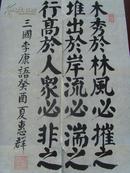 木秀於林風必摧之
堆出於岸流必湍之
行高於人衆必非之
三國李康語癸酉夏惠群